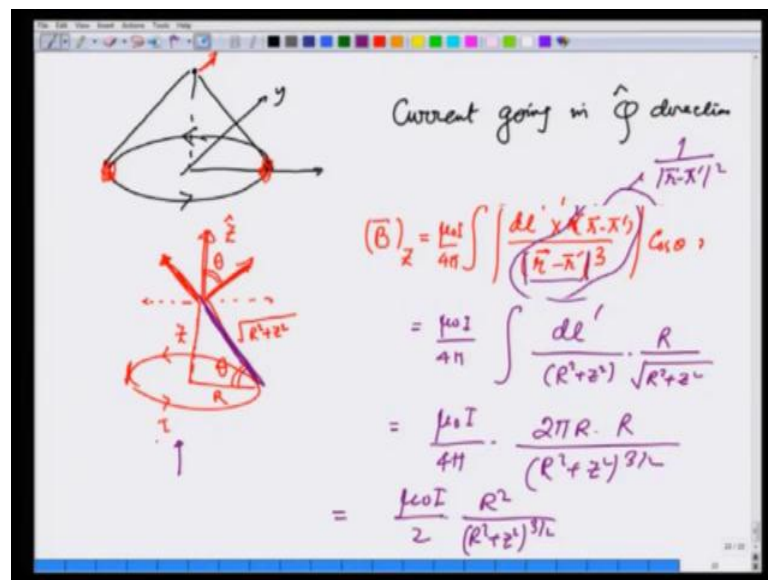 File Edit View Insert Actions Tools Help
y
Current going in φ̂ direction
1
|r̄-r̄'|²
ẑ
θ
(B̄)_z = μ₀I/4π ∫ | dl' × (r̄-r̄') / |r̄-r̄'|³ | Cosθ,
z
√R²+z²
θ
R
I
= μ₀I/4π ∫ dl' / (R²+z²) · R / √R²+z²
= μ₀I/4π · 2πR·R / (R²+z²)^3/2
= μ₀I/2 R² / (R²+z²)^3/2